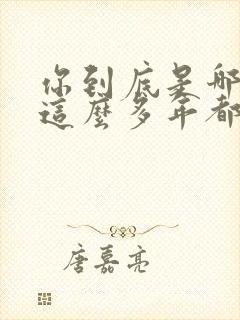 你到底是哪
這麼多年都
唐嘉亮